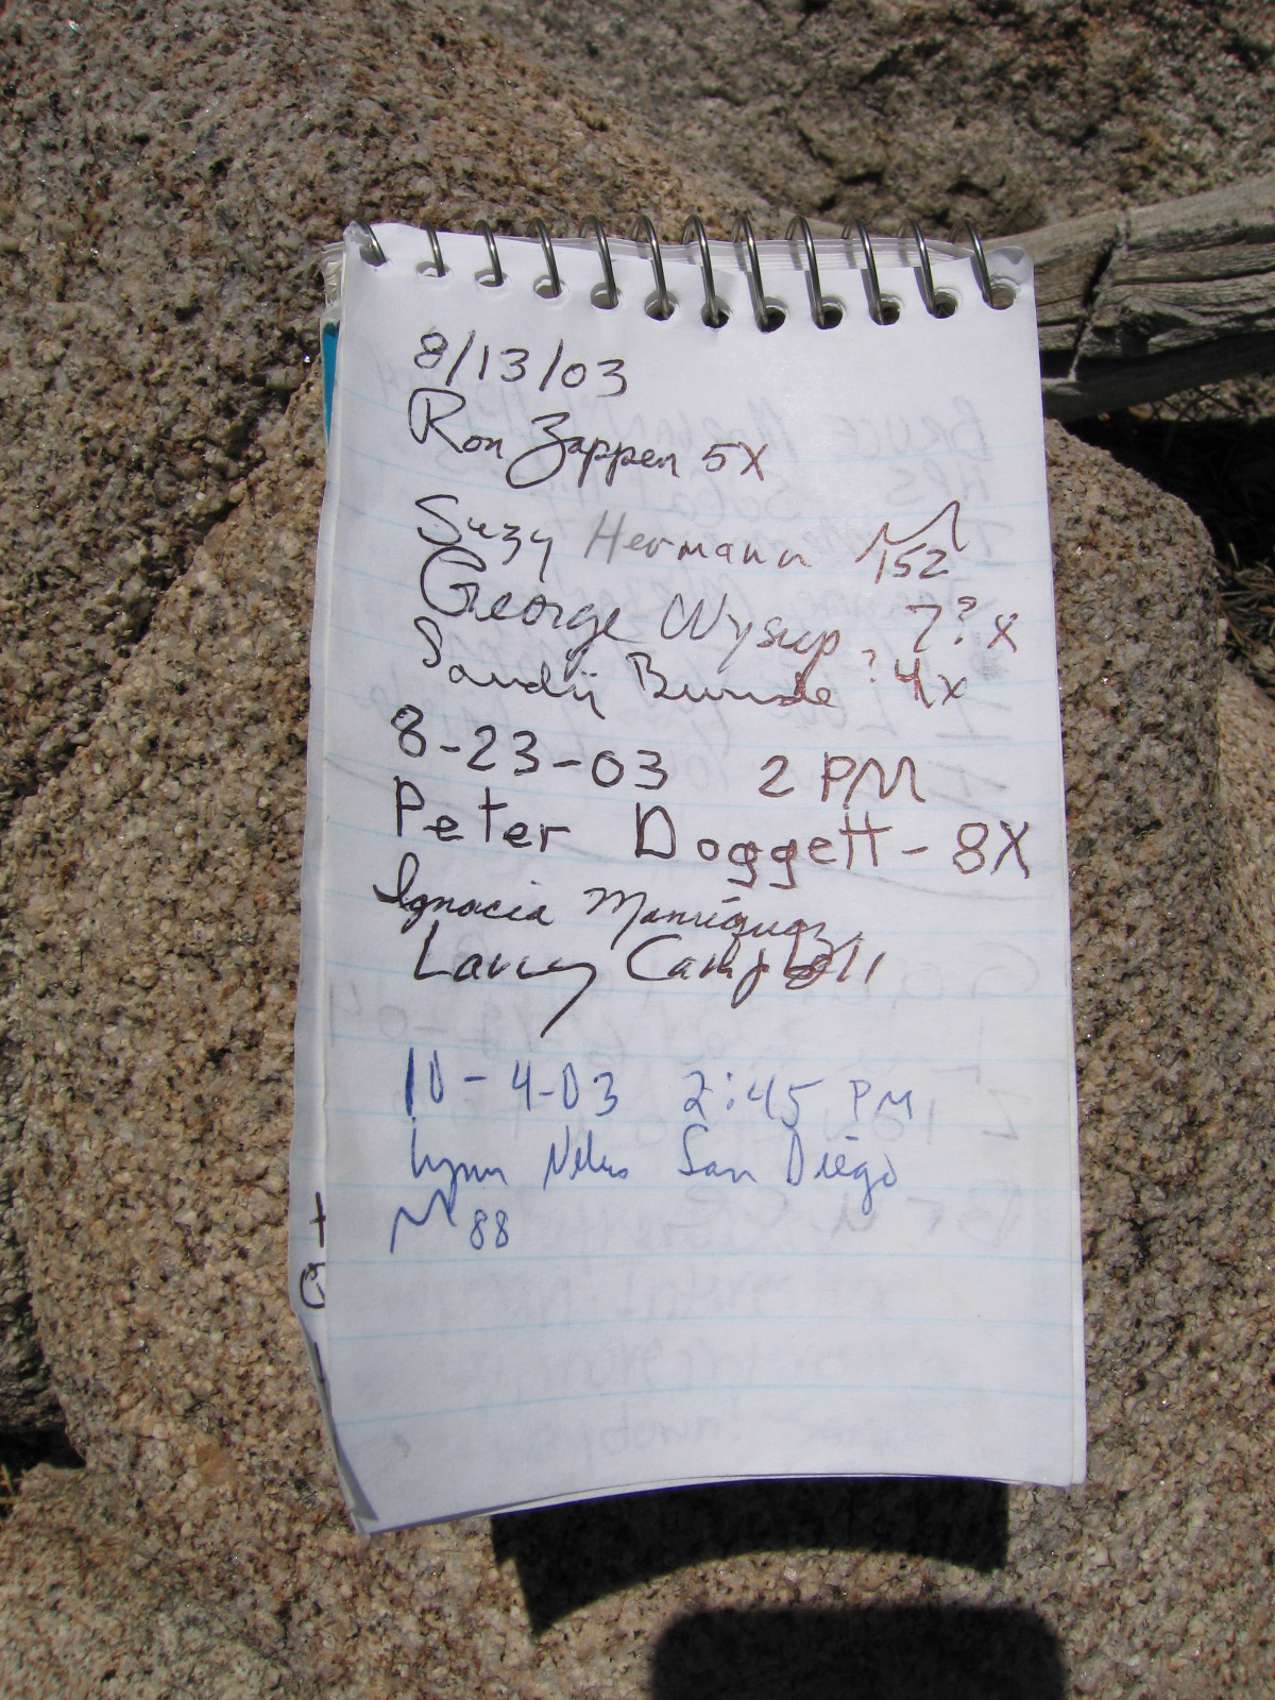 8/13/03
Ron Zappen 5X
Suzy Hermann 152
George Wysup 7?x
Sandy ? 4x
8-23-03 2 PM
Peter Doggett - 8X
Ignacia Manriquez
Larry Campbell
10-4-03 2:45 PM
Lynn San Diego
88